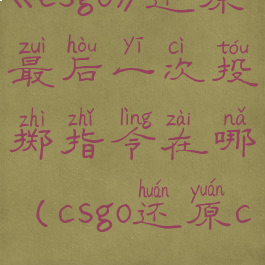 《csgo》还原
zuì hòu yī cì tóu
最后一次投
zhì zhǐ lìng zài nǎ
掷指令在哪
huán yuán
(csgo还原c